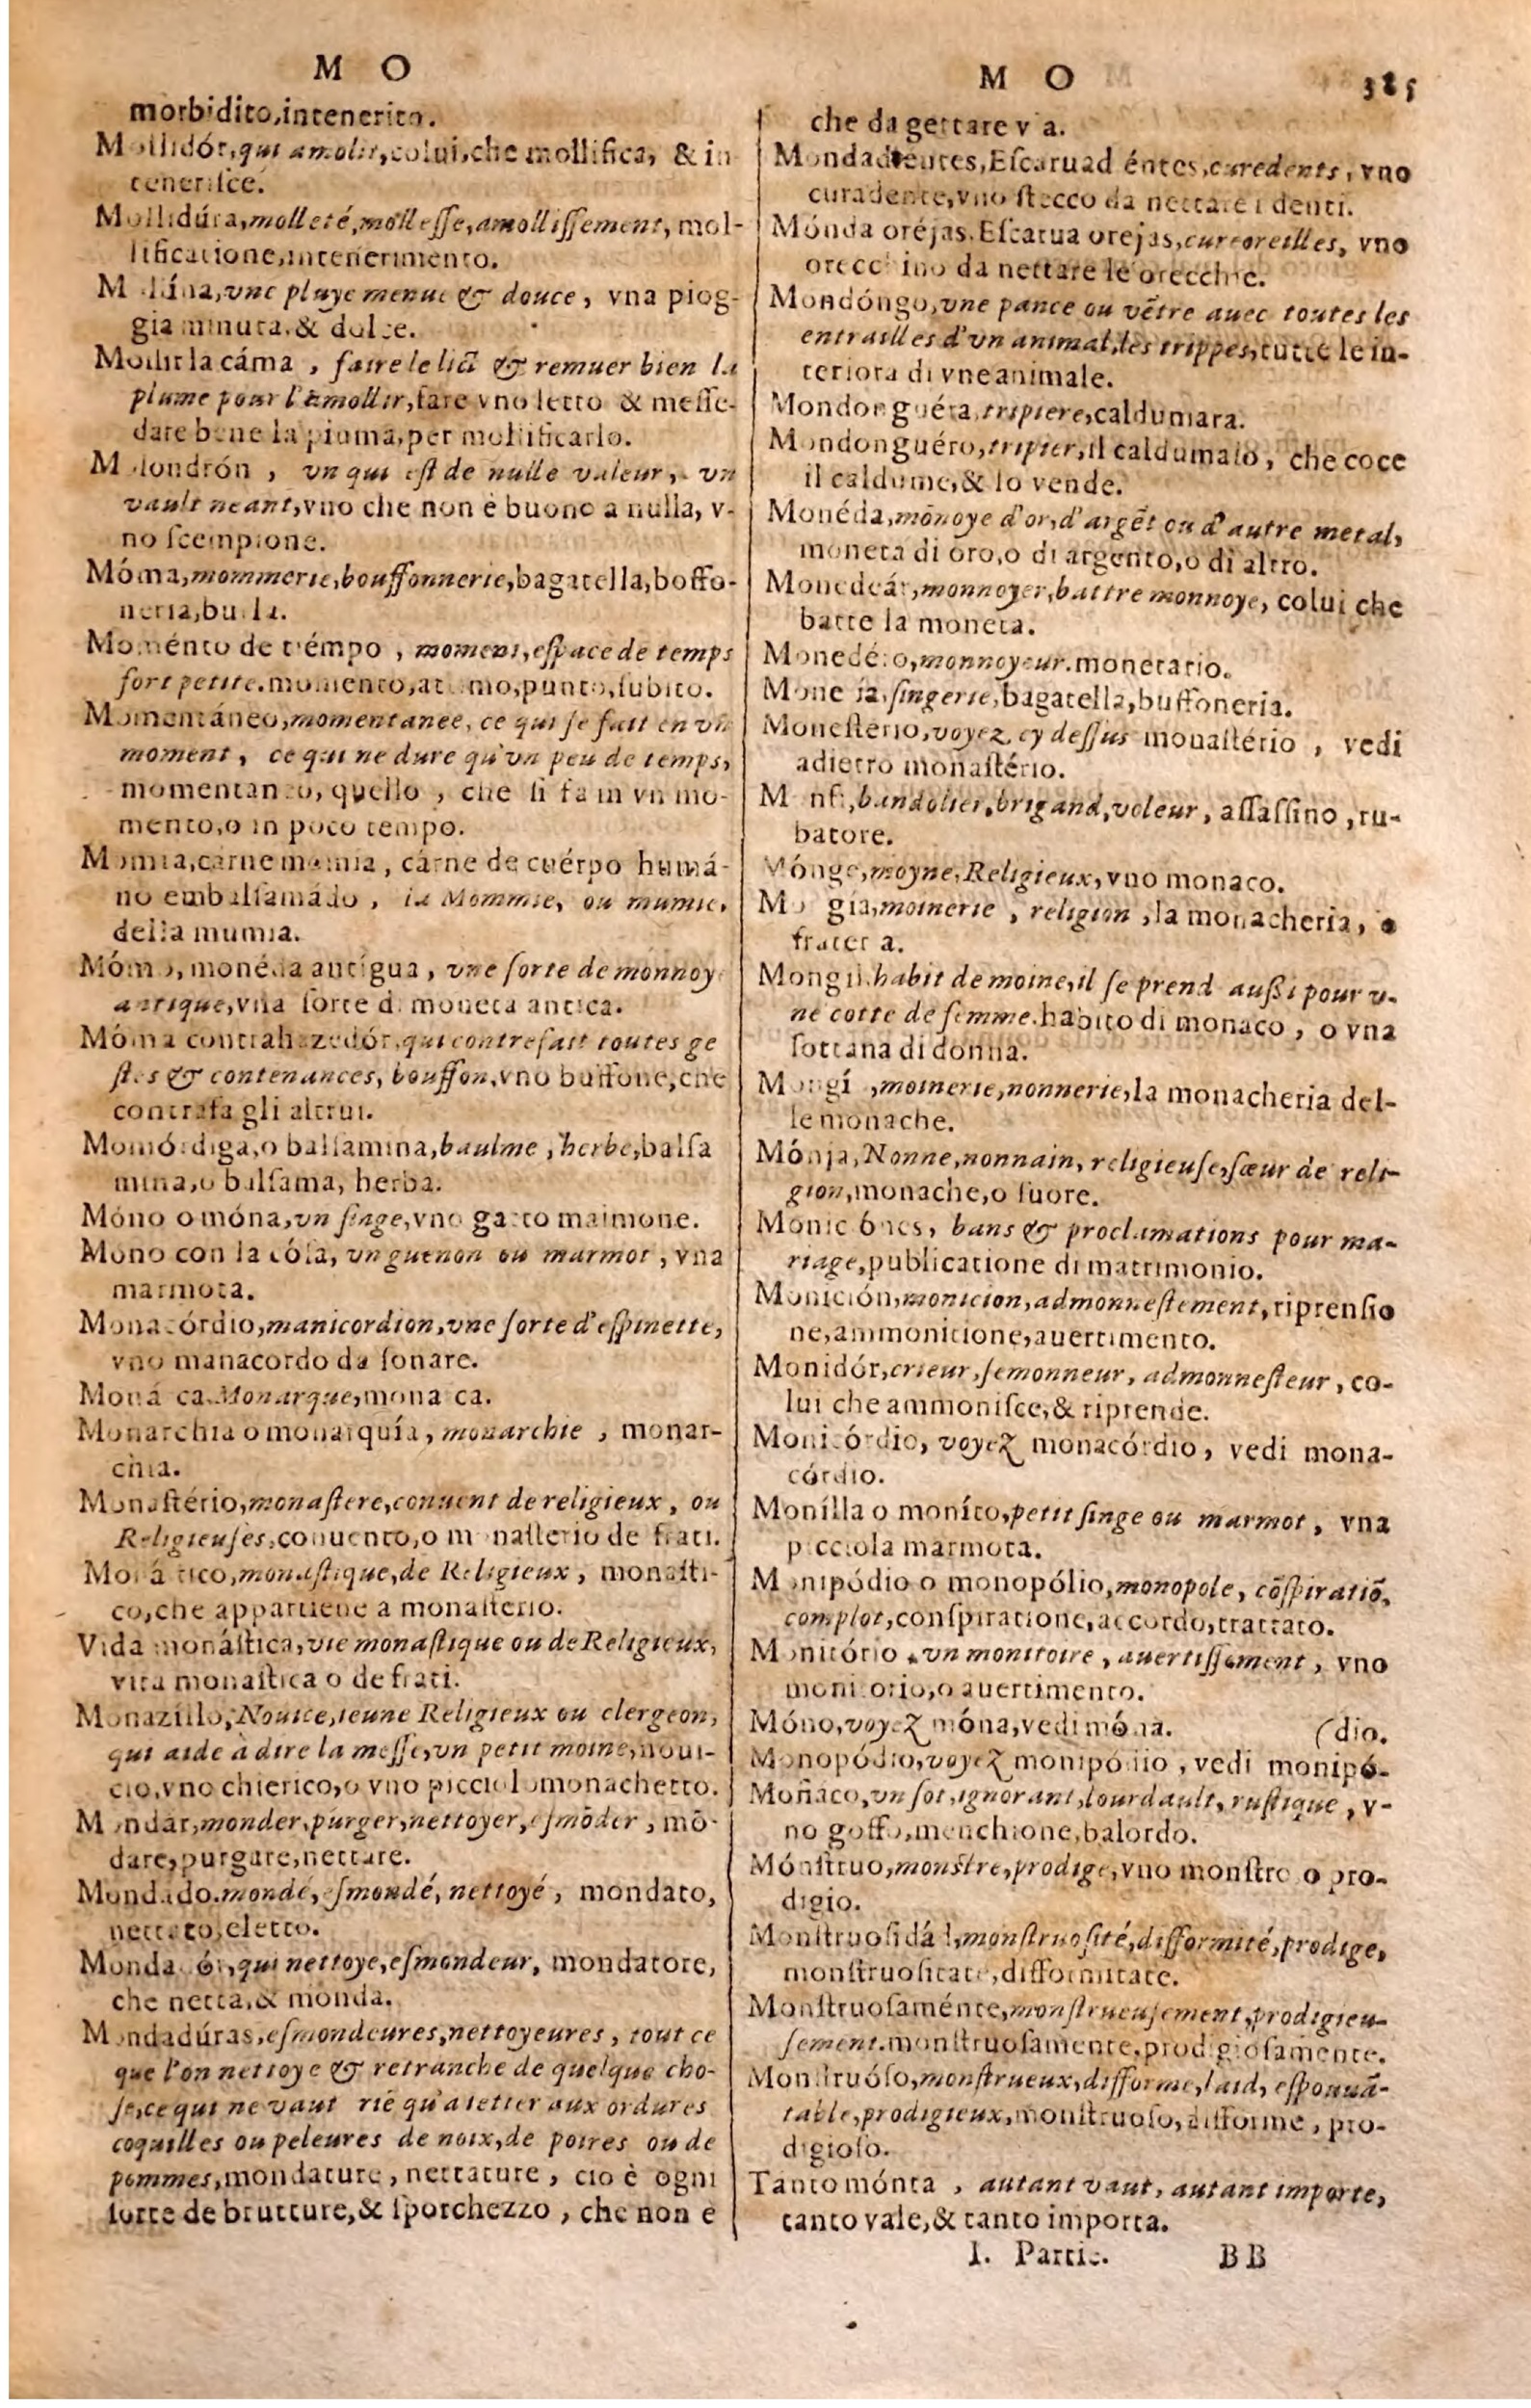 M O
morbidito,intenerito.
Mollidór,qui amolit,colui,che mollifica, & in
teneriſce.
Mollidúra,molleté,molleſſe,amolliſſement, mol-
lificatione,intenerimento.
Mollína,vne pluye menue & douce, vna piog-
gia minuta,& dolce.
Mollir la cáma , faire le lict & remuer bien la
plume pour l'amollir,fare vno letto & meſſe-
dare bene la piuma,per mollificarlo.
Molondrón , vn qui eſt de nulle valeur, vn
vault neant,vno che non è buono a nulla, v-
no ſcempione.
Móma,mommerie,bouffonnerie,bagatella,boffo-
neria,burla.
Moménto de tiémpo , moment,eſpace de temps
fort petite.momento,attimo,punto,ſubito.
Momentáneo,momentanee, ce qui ſe fait en vn
moment, ce qui ne dure qu'vn peu de temps,
momentaneo, quello , che ſi fa in vn mo-
mento,o in poco tempo.
Momia,carne momia, cárne de cuérpo humá-
no embalſamádo , la Mommie, ou mumie,
della mumia.
Mómo, monéda antígua, vne ſorte de monnoye
antique,vna ſorte di moneta antica.
Móma contrahazedór,qui contrefait toutes ge
ſtes & contenances, bouffon,vno buffone,che
contrafa gli altrui.
Momórdiga,o balſamina,baulme , herbe,balſa
mina,o balſama, herba.
Móno o móna,vn ſinge,vno gatto maimone.
Mono con la cóla, vn guenon ou marmot, vna
marmota.
Monacórdio,manicordion,vne ſorte d'eſpinette,
vno manacordo da ſonare.
Moná ca.Monarque,mona ca.
Monarchia o monarquía, monarchie , monar-
chia.
Monaſtério,monaſtere,conuent de religieux, ou
Religieuſes,conuento,o monaſterio de frati.
Moná tico,monaſtique,de Religieux, monaſti-
co,che appartiene a monaſterio.
Vida monáſtica,vie monaſtique ou de Religieux,
vita monaſtica o de frati.
Monazillo,Nouice,ieune Religieux ou clergeon,
qui aide à dire la meſſe,vn petit moine,noui-
cio,vno chierico,o vno picciolo monachetto.
Mondar,monder,purger,nettoyer,eſmōder, mō-
dare,purgare,nettare.
Mondado.mondé,eſmondé,nettoyé, mondato,
nettato,eletto.
Mondadór,qui nettoye,eſmondeur, mondatore,
che netta,& monda.
Mondadúras,eſmondeures,nettoyeures, tout ce
que l'on nettoye & retranche de quelque cho-
ſe,ce qui ne vaut riē qu'a ietter aux ordures
coquilles ou peleures de noix,de poires ou de
pommes,mondature, nettature, cio è ogni
ſorte de brutture,& ſporchezzo , che non è
M O 385
che da gettare via.
Mondadientes,Eſcaruad éntes,curedents, vno
curadente,vno ſtecco da nettare i denti.
Mónda oréjas.Eſcarua orejas,cureoreilles, vno
orecchino da nettare le orecchie.
Mondóngo,vne pance ou vētre auec toutes les
entrailles d'vn animal,les trippes,tutte le in-
teriora di vne animale.
Mondonguéra,tripiere,caldumara.
Mondonguéro,tripier,il caldumaio, che coce
il caldume,& lo vende.
Monéda,mōnoye d'or,d'argēt ou d'autre metal,
moneta di oro,o di argento,o di altro.
Monedeár,monnoyer,battre monnoye, colui che
batte la moneta.
Monedéro,monnoyeur.monetario.
Mone ía,ſingerie,bagatella,buffoneria.
Moneſterio,voyez cy deſſus monaſtério , vedi
adietro monaſtério.
M nfi,bandolier,brigand,voleur, aſſaſſino ,ru-
batore.
Mónge,moyne,Religieux,vno monaco.
Mo gia,moinerie , religion ,la monacheria, o
frater a.
Mongil.habit de moine,il ſe prend auſſi pour v-
ne cotte de femme.habito di monaco, o vna
ſottana di donna.
Mongí ,moinerie,nonnerie,la monacheria del-
le monache.
Mónja,Nonne,nonnain, religieuſe,ſœur de reli-
gion,monache,o ſuore.
Monic ónes, bans & proclamations pour ma-
riage,publicatione di matrimonio.
Monición,monicion,admonneſtement,riprenſio
ne,ammonitione,auertimento.
Monidór,crieur,ſemonneur, admonneſteur, co-
lui che ammoniſce,& riprende.
Monicórdio, voyez monacórdio, vedi mona-
córdio.
Monílla o moníto,petit ſinge ou marmot, vna
picciola marmota.
Monipódio o monopólio,monopole, cōſpiratiō,
complot,conſpiratione,accordo,trattato.
Monitório , vn monitoire, auertiſſement, vno
monitorio,o auertimento.
Móno,voyez móna,vedi móna. (dio.
Monopódio,voyez monipódio , vedi monipó-
Moñaco,vn ſot,ignorant,lourdault,ruſtique, v-
no goffo,menchione,balordo.
Mónſtruo,monſtre,prodige,vno monſtro o pro-
digio.
Monſtruoſidá l,monſtruoſité,difformité,prodige,
monſtruoſitate,difformitate.
Monſtruoſaménte,monſtrueuſement,prodigieu-
ſement.monſtruoſamente,prodigioſamente.
Monſtruóſo,monſtrueux,difforme,laid, eſpouuā-
table,prodigieux,monſtruoſo,difforme, pro-
digioſo.
Tanto mónta , autant vaut, autant importe,
tanto vale,& tanto importa.
I. Partie. BB